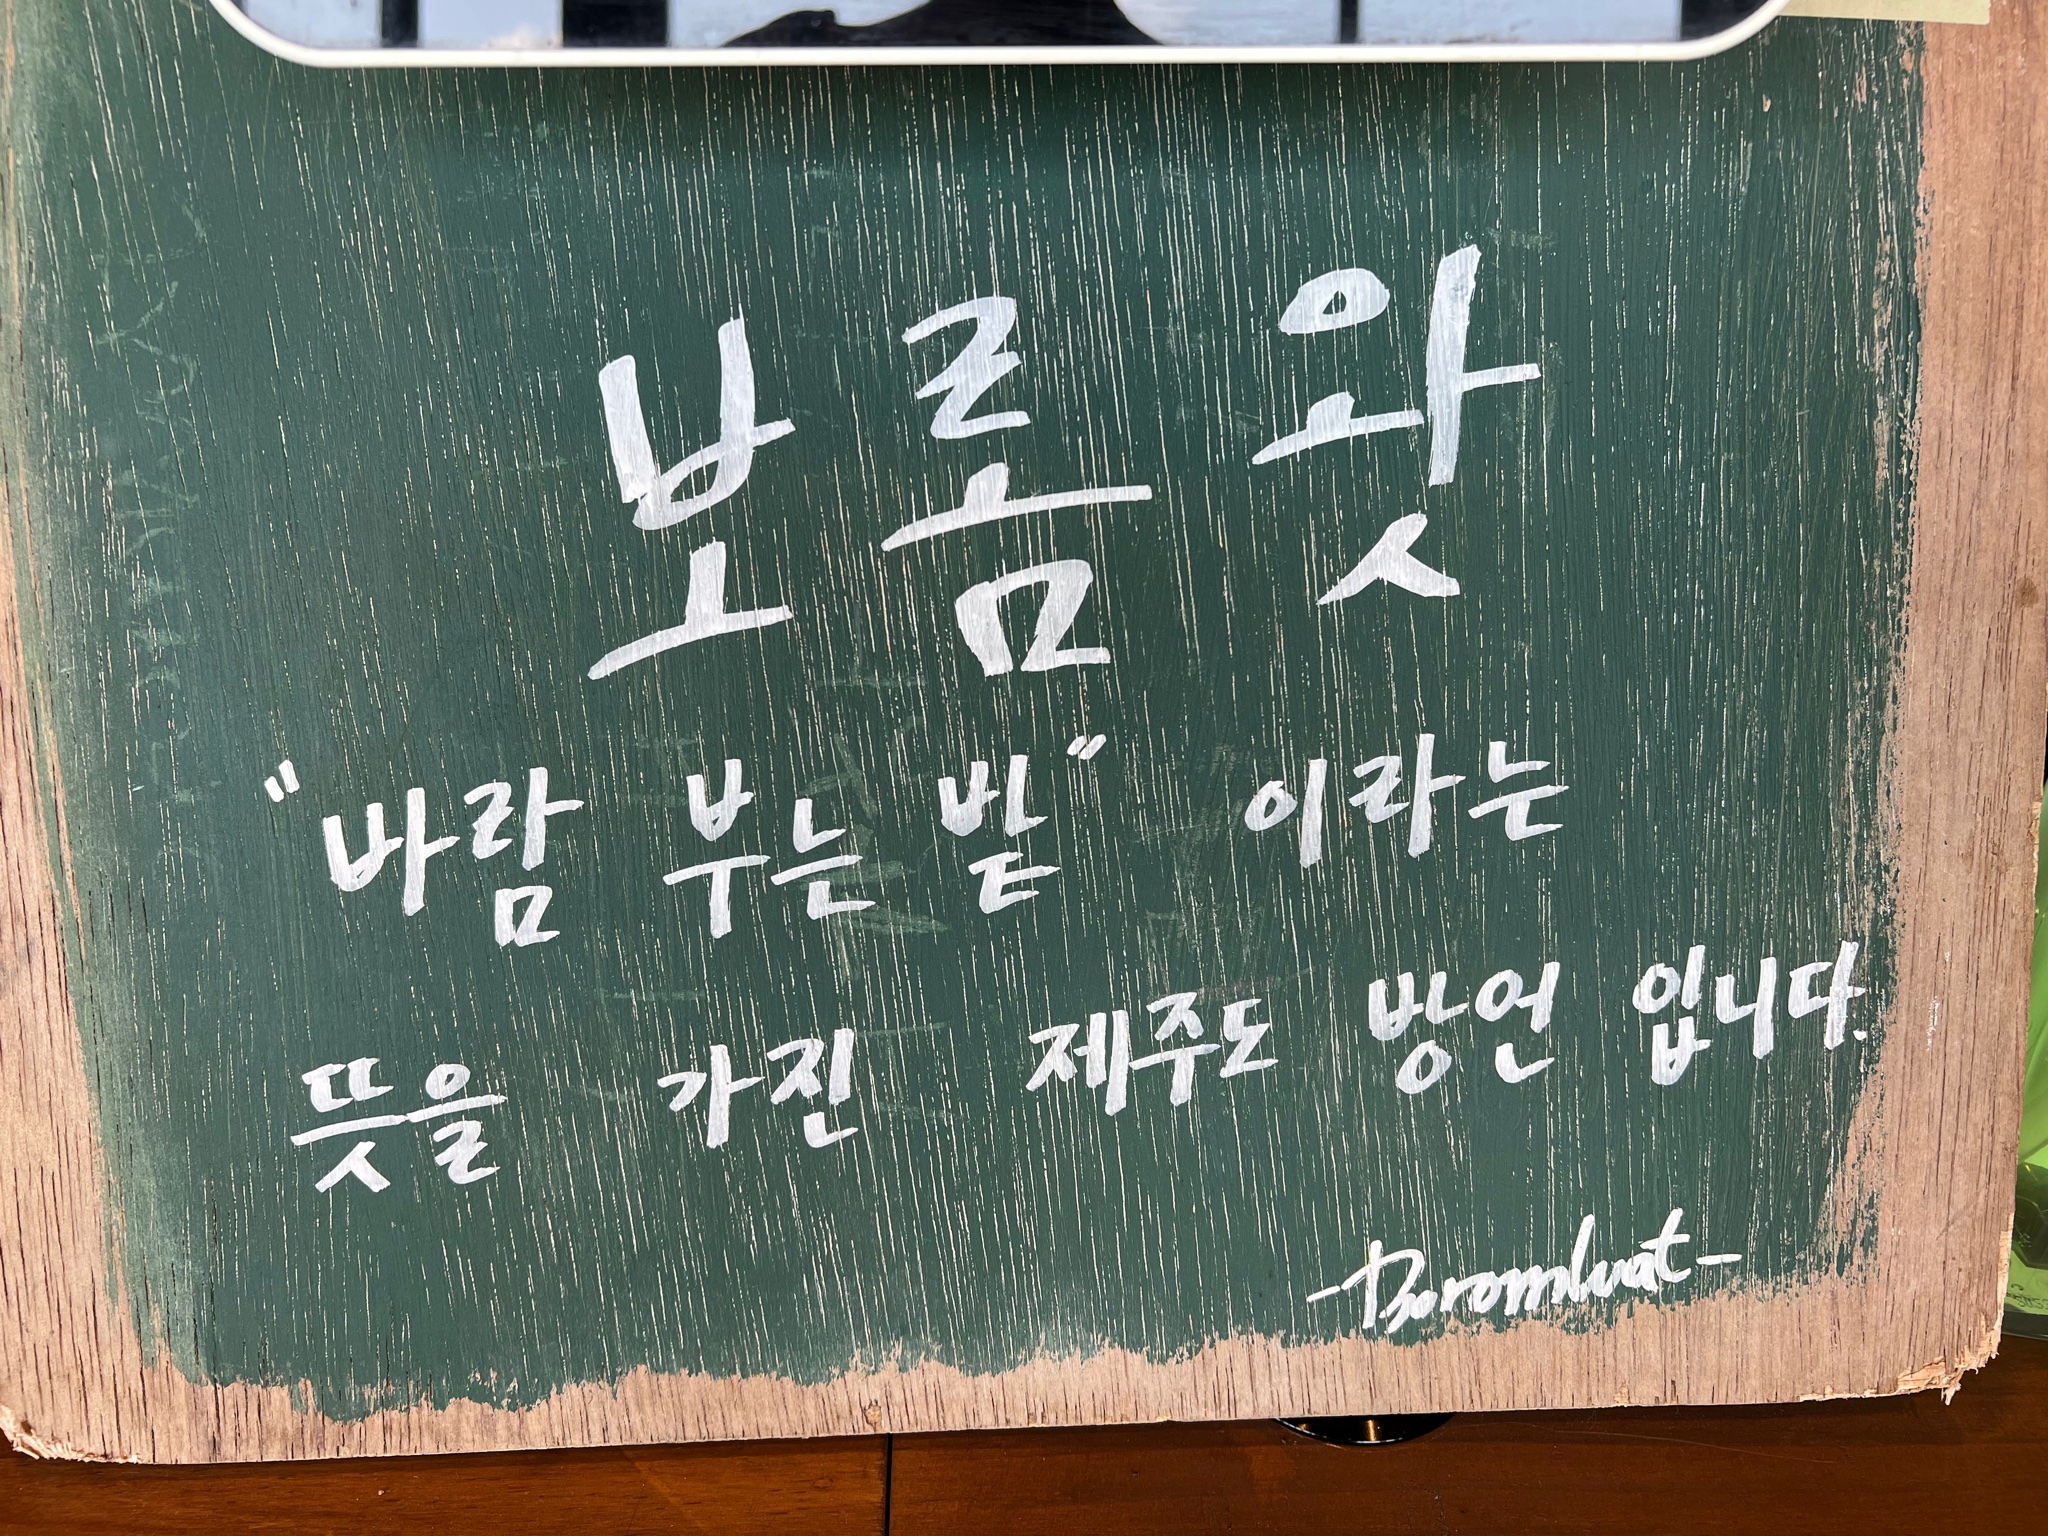 보롬왓
"바람 부는 밭" 이라는
뜻을 가진 제주도 방언 입니다.
-Boromwat-